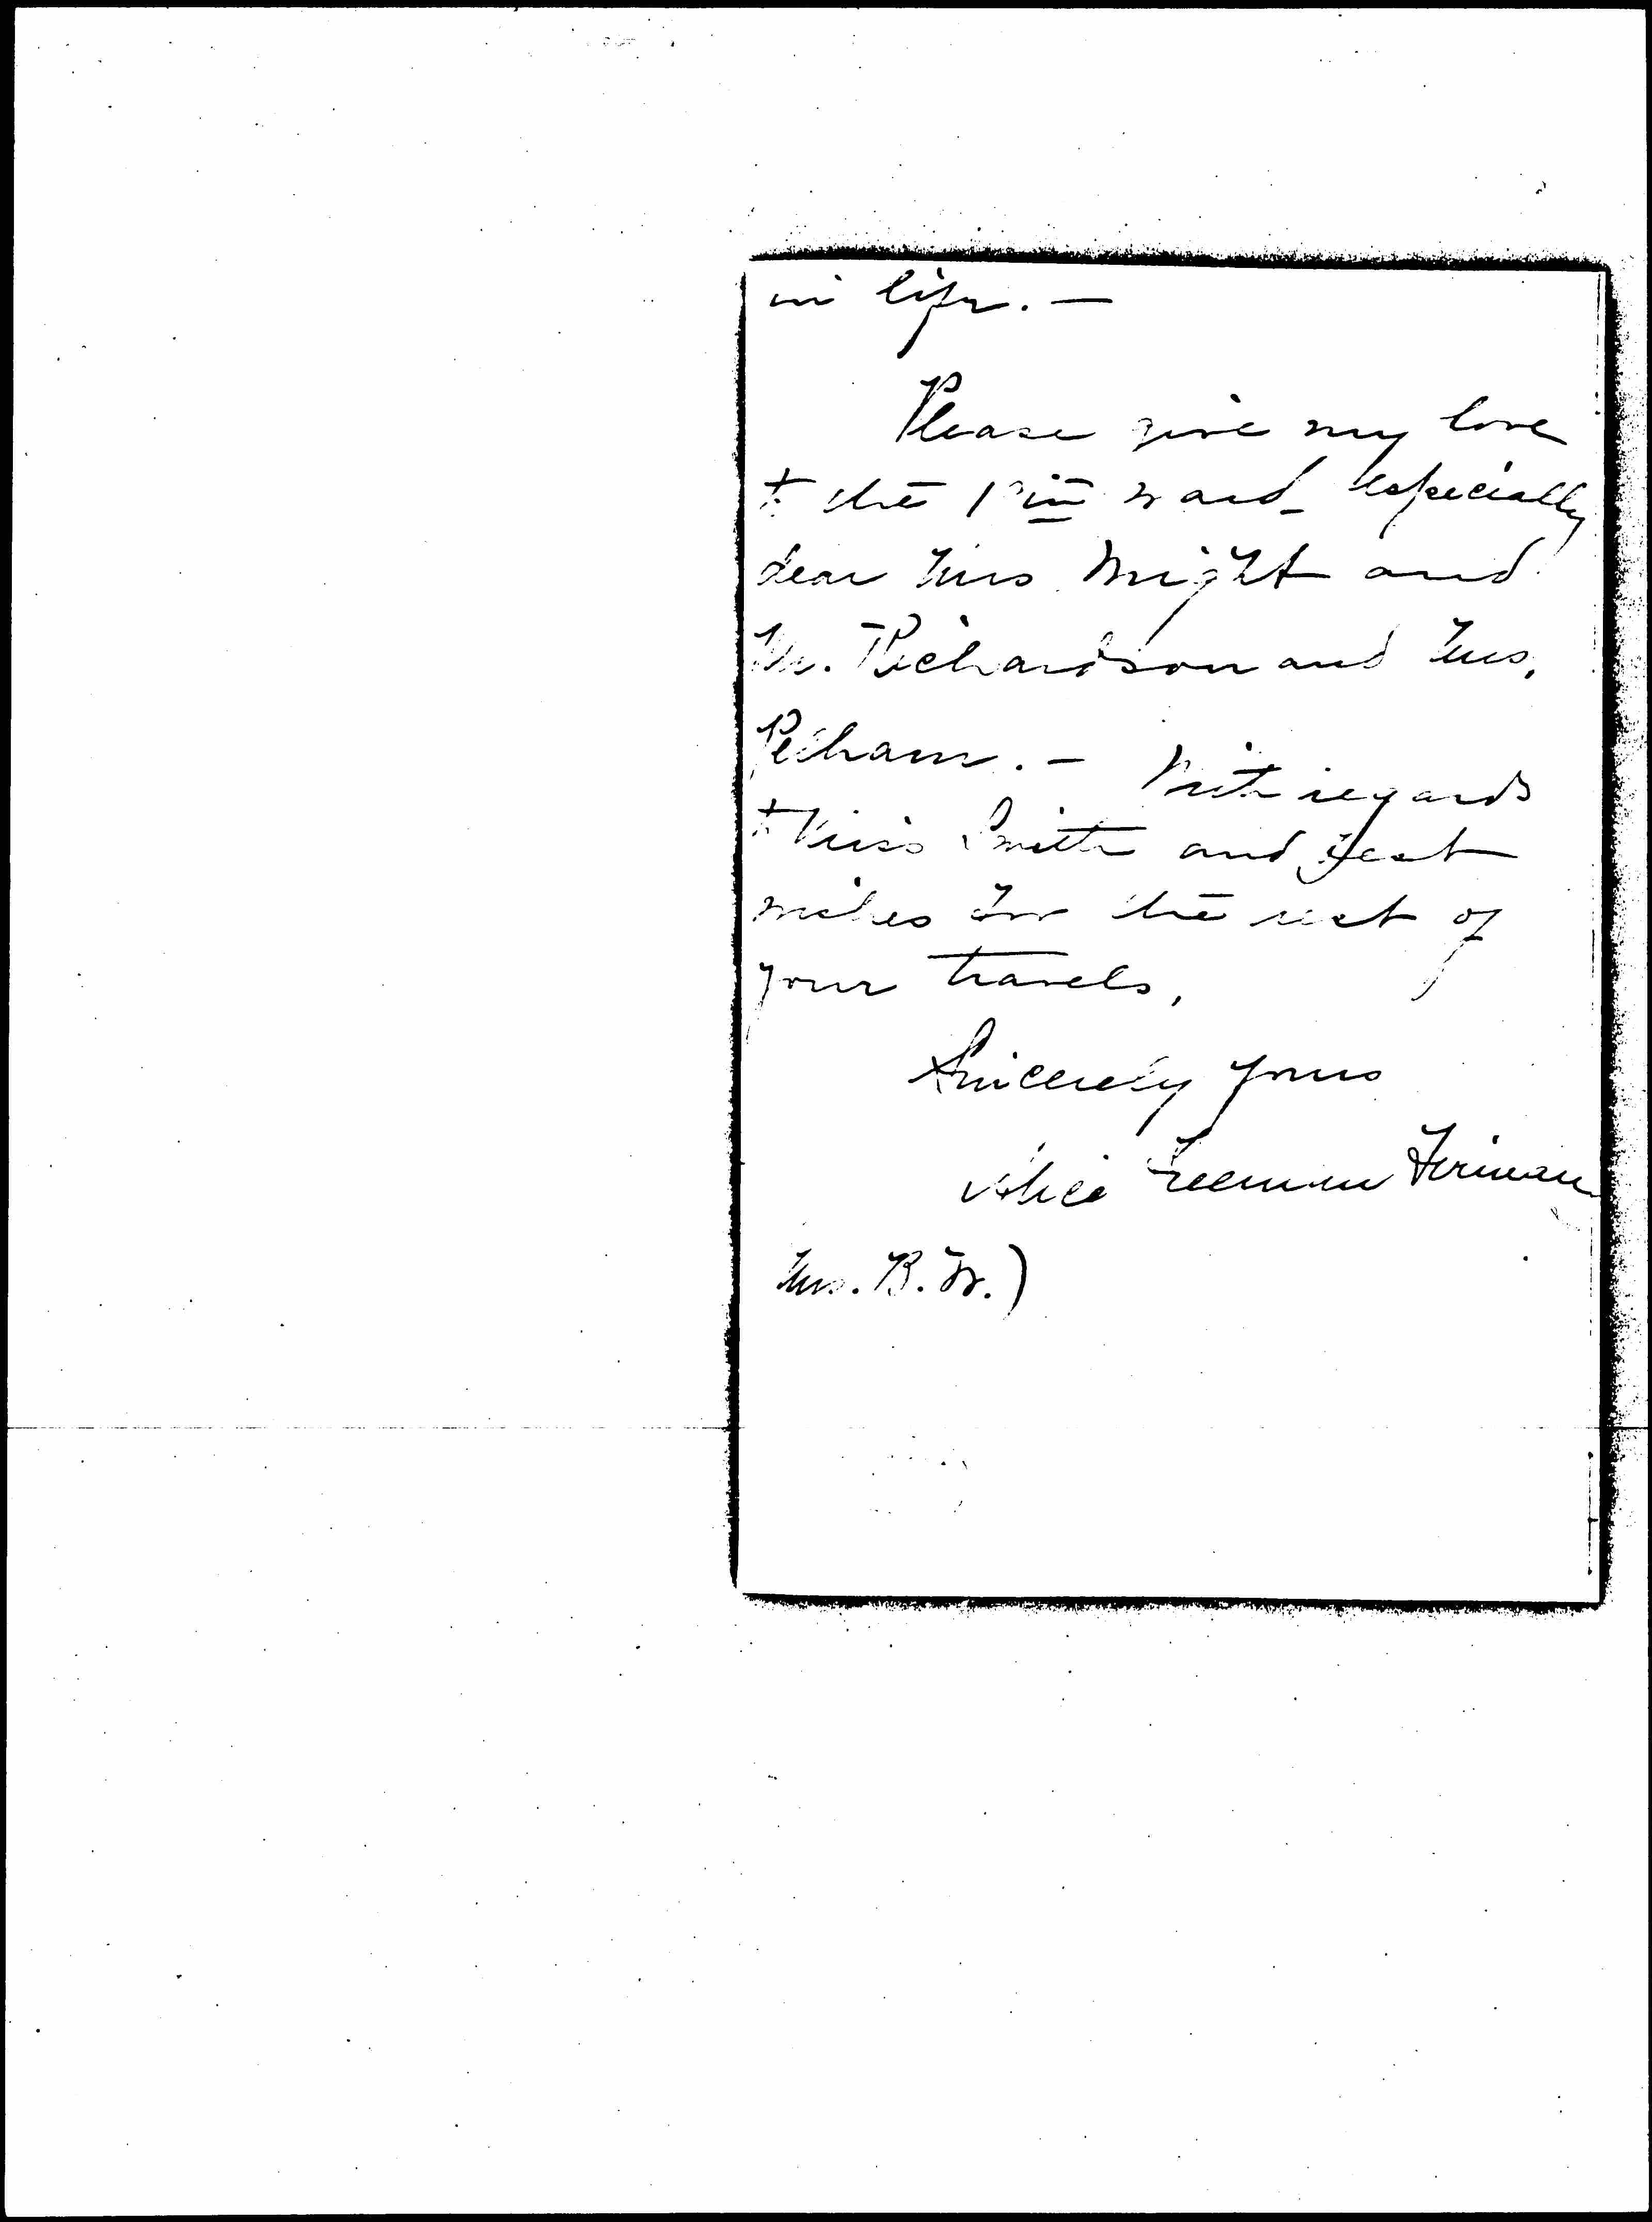 in life. —
Please give my love
to the ward - especially
dear Mrs Wright and
Mr. Richardson and Mrs.
Pelham. — With regards
to Miss Smith and best
wishes for the rest of
your travels,
Sincerely yours
Alice Freeman
Mrs. B. W.)